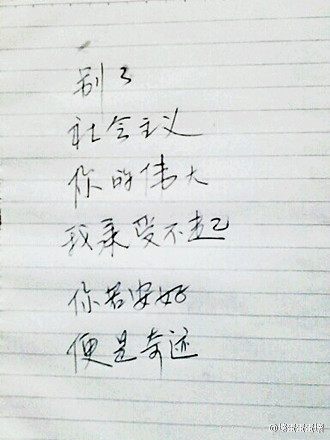 别了
社会主义
你的伟大
我承受不起
你若安好
便是奇迹